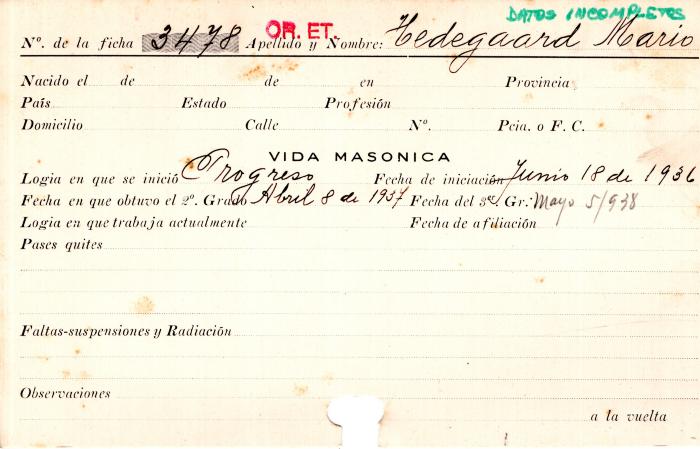 DATOS INCOMPLETOS
OR. ET.
Nº. de la ficha 3478 Apellido y Nombre: Hedegaard Mario
Nacido el de de en Provincia
País Estado Profesión
Domicilio Calle Nº. Pcia. o F. C.
VIDA MASONICA
Logia en que se inició Progreso Fecha de iniciación Junio 18 de 1936
Fecha en que obtuvo el 2º. Grado Abril 8 de 1937 Fecha del 3er Gr.: Mayo 5/938
Logia en que trabaja actualmente Fecha de afiliación
Pases quites
Faltas-suspensiones y Radiación
Observaciones
a la vuelta